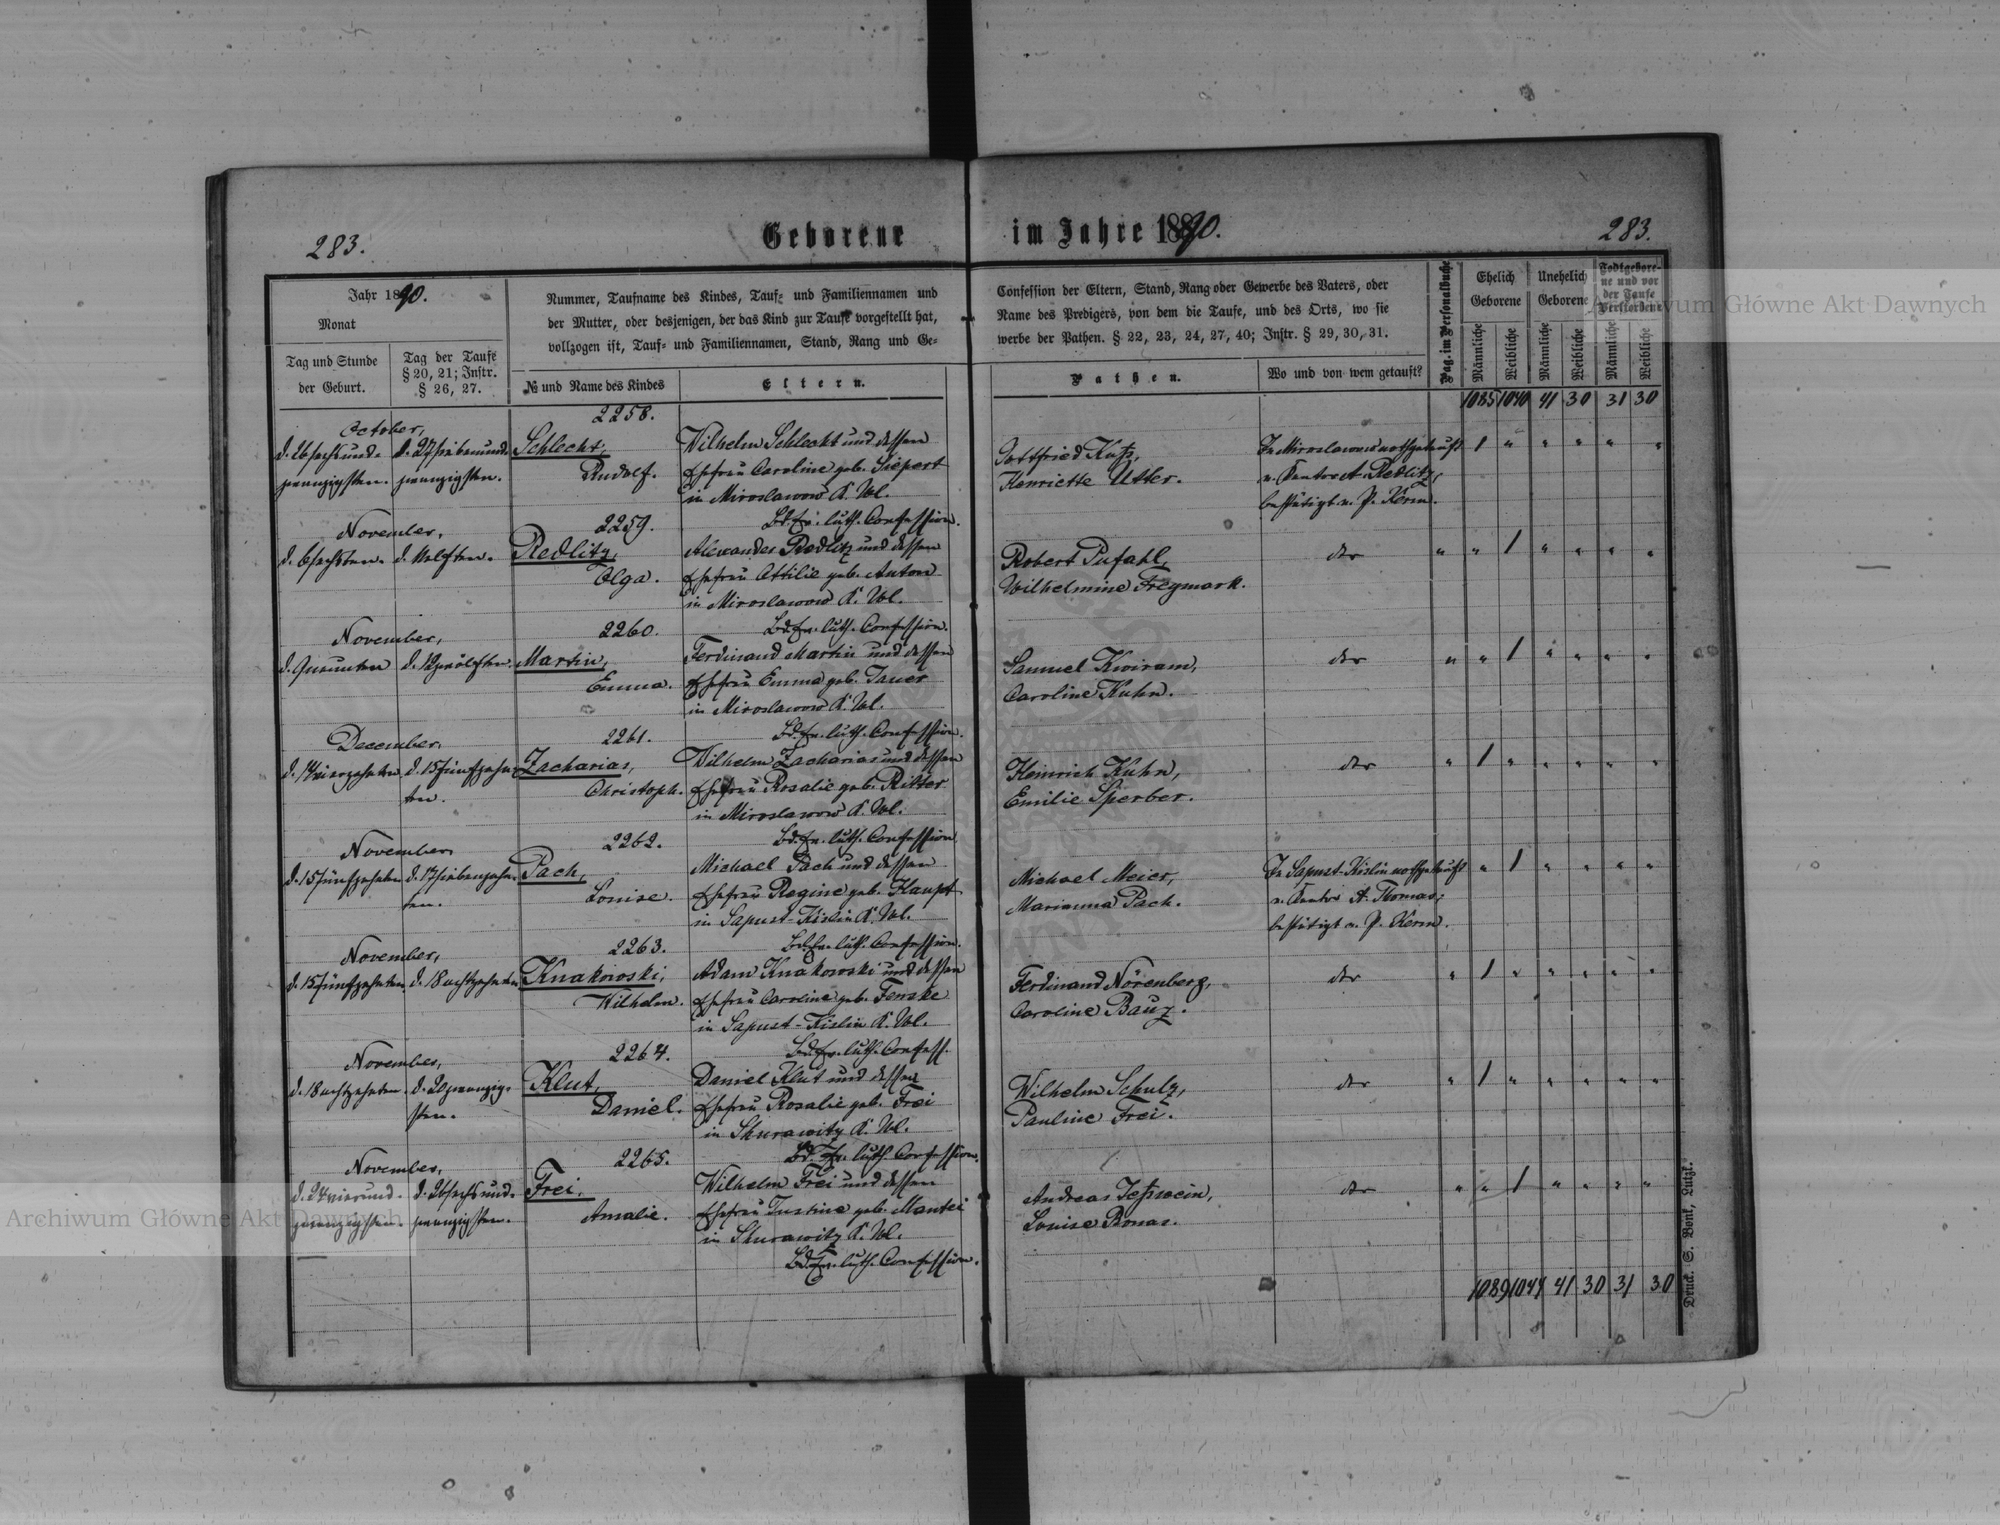 283.
Geborene im Jahre 1890.
283.
Jahr 1890.
Monat
Tag und Stunde
der Geburt.
Tag der Taufe
§ 20, 21; Instr.
§ 26, 27.
Nummer, Taufname des Kindes, Tauf- und Familiennamen und
der Mutter, oder desjenigen, der das Kind zur Taufe vorgestellt hat,
vollzogen ist, Tauf- und Familiennamen, Stand, Rang und Ge-
№ und Name des Kindes
Eltern.
Confession der Eltern, Stand, Rang oder Gewerbe des Vaters, oder
Name des Predigers, von dem die Taufe, und des Orts, wo sie
werbe der Pathen. § 22, 23, 24, 27, 40; Instr. § 29, 30, 31.
Pathen.
Wo und von wem getauft?
Pag. im Personalbuche
Ehelich
Geborene
Unehelich
Geborene
Todtgebore-
ne und vor
der Taufe
Verstorbene
Männliche
Weibliche
Männliche
Weibliche
Männliche
Weibliche
1085 1040 41 30 31 30
October,
d. 26 sechsund-
zwanzigsten.
d. 27 siebenund-
zwanzigsten.
2258.
Schlecht,
Rudolf.
Wilhelm Schlecht und dessen
Ehefrau Caroline geb. Siepert
in Miroslawow K. Wl.
Bd. Ev. luth. Confession.
Gottfried Kutz,
Henriette Utter.
In Miroslawow nothgetauft
v. Kantor A. Redlitz,
bestätigt v. P. Kerm.
1 " " " " "
November,
d. 6 sechsten.
d. 11 elften.
2259.
Redlitz,
Olga.
Alexander Redlitz und dessen
Ehefrau Ottilie geb. Anton
in Miroslawow K. Wl.
Bd. Ev. luth. Confession.
Robert Pufahl,
Wilhelmine Freymark.
der
" " 1 " " " "
November,
d. 9 neunten
d. 12 zwölften.
2260.
Martin,
Emma.
Ferdinand Martin und dessen
Ehefrau Emma geb. Jauer
in Miroslawow K. Wl.
Bd. Ev. luth. Confession.
Samuel Kwiram,
Caroline Kuhn.
der
" " 1 " " " "
December,
d. 14 vierzehnten
d. 15 fünfzehn-
ten.
2261.
Zacharias,
Christoph.
Wilhelm Zacharias und dessen
Ehefrau Rosalie geb. Ritter
in Miroslawow K. Wl.
Bd. Ev. luth. Confession
Heinrich Kuhn,
Emilie Sperber.
der
" 1 " " " " "
November,
d. 15 fünfzehnten
d. 17 siebenzehn-
ten.
2262.
Pach,
Louise.
Michael Pach und dessen
Ehefrau Regine geb. Haupt
in Sapust-Kislin K. Wl.
Bd. Ev. luth. Confession.
Michael Meier,
Marianna Pach.
In Sapust-Kislin nothgetauft
v. Kantor A. Thomas;
bestätigt v. P. Kerm.
" 1 " " " "
November,
d. 15 fünfzehnten
d. 18 achtzehnten
2263.
Knakowski,
Wilhelm.
Adam Knakowski und dessen
Ehefrau Caroline geb. Fenske
in Sapust-Kislin K. Wl.
Bd. Ev. luth. Confess.
Ferdinand Nörenberg,
Caroline Bauz.
der
" 1 " " " " "
November,
d. 18 achtzehnten.
d. 20 zwanzig-
sten.
2264.
Klut,
Daniel.
Daniel Klut und dessen
Ehefrau Rosalie geb. Frei
in Skurawitz K. Wl.
Bd. Ev. luth. Confession.
Wilhelm Schulz,
Pauline Frei.
der
" 1 " " " " "
November,
d. 24 vierund-
zwanzigsten.
d. 26 sechsund-
zwanzigsten.
2265.
Frei,
Amalie.
Wilhelm Frei und dessen
Ehefrau Justine geb. Mantei
in Skurawitz K. Wl.
Bd. Ev. luth. Confession.
Andreas Jesswein,
Louise Ronas.
der
" " 1 " " " "
1089 1044 41 30 31 30
Druck. S. Bonk, Lutzk.
Archiwum Główne Akt Dawnych
Archiwum Główne Akt Dawnych